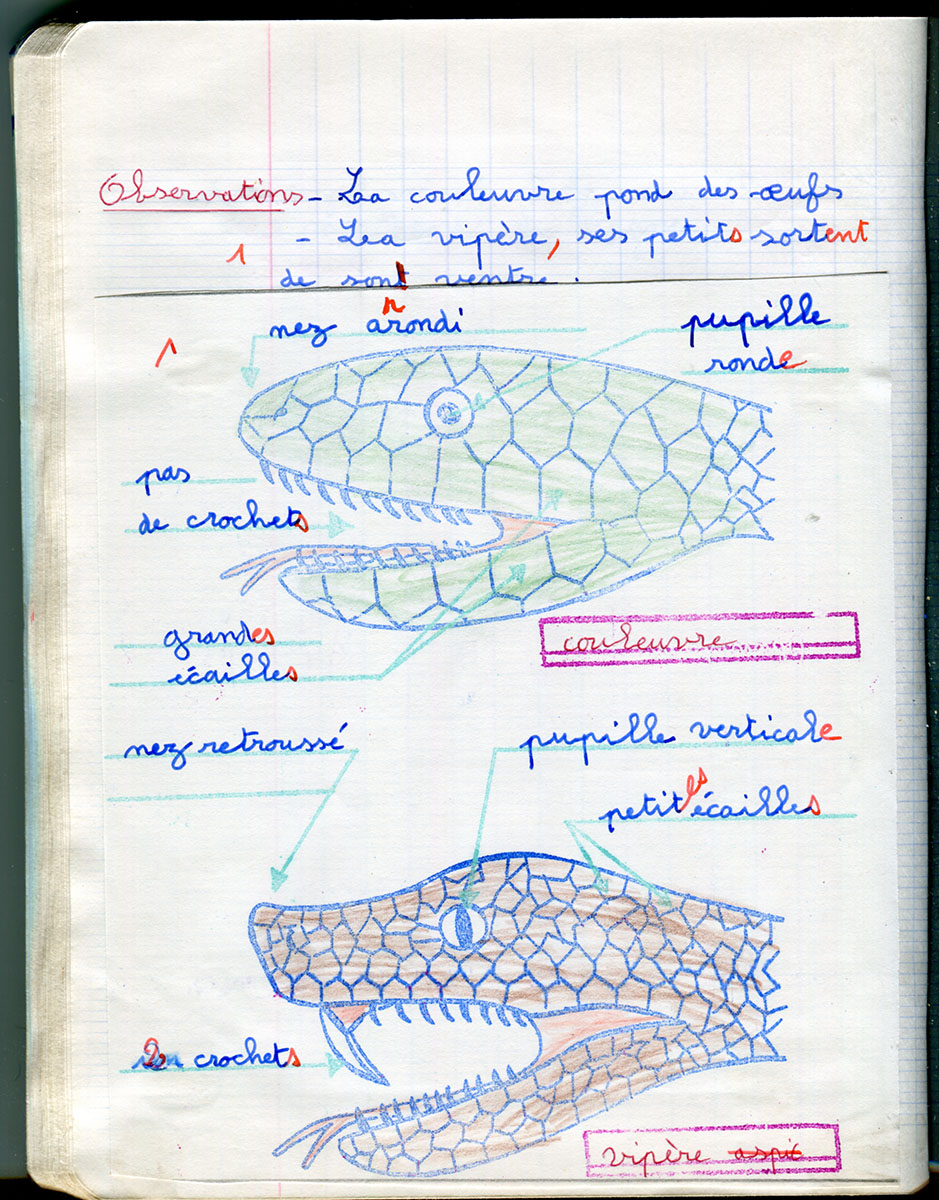 Observations - La couleuvre pond des œufs
- La vipère, ses petits sortent
de son ventre.
nez arrondi
pupille
ronde
pas
de crochets
grandes
écailles
couleuvre
nez retroussé
pupille verticale
petites écailles
2 crochets
vipère aspic